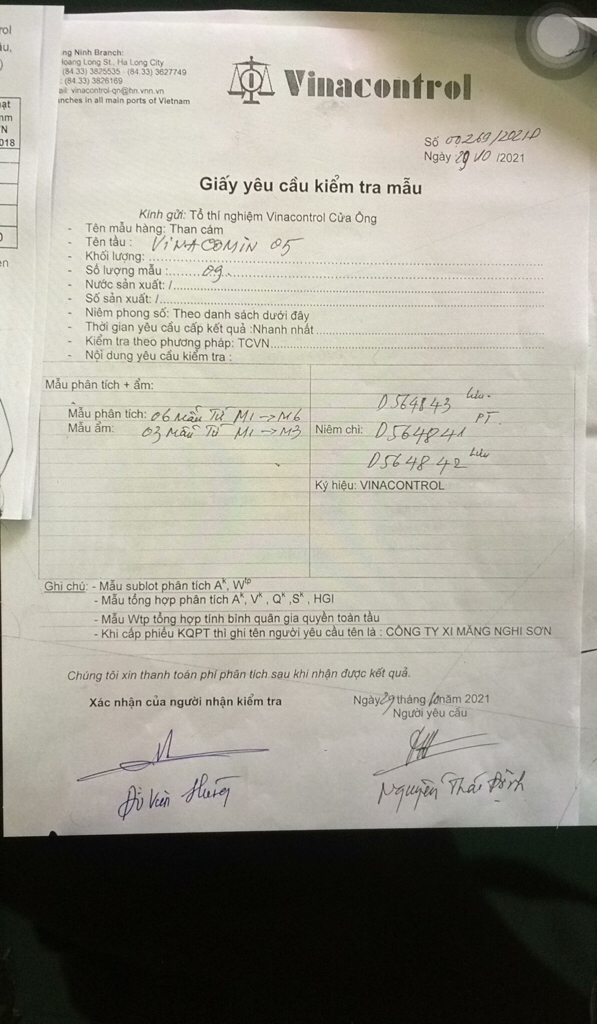 rol
ạt
nm
N
018
ng Ninh Branch:
Hoang Long St., Ha Long City
(84.33) 3825535 - (84.33) 3627749
(84.33) 3826169
ail: vinacontrol-qn@hn.vnn.vn
anches in all main ports of Vietnam
Vinacontrol
Số 00269/2021D
Ngày 29/10/2021
Giấy yêu cầu kiểm tra mẫu
Kính gửi: Tổ thí nghiệm Vinacontrol Cửa Ông
- Tên mẫu hàng: Than cám
- Tên tầu : VINACOMIN 05
- Khối lượng:
- Số lượng mẫu : 09
- Nước sản xuất: /
- Số sản xuất: /
- Niêm phong số: Theo danh sách dưới đây
- Thời gian yêu cầu cấp kết quả :Nhanh nhất
- Kiểm tra theo phương pháp: TCVN
- Nội dung yêu cầu kiểm tra :
Mẫu phân tích + ẩm:
Mẫu phân tích: 06 Mẫu Từ M1 → M6
Mẫu ẩm: 03 Mẫu Từ M1 → M3
D564843 Lưu
PT
Niêm chì: D564841
D564842 Lưu
Ký hiệu: VINACONTROL
Ghi chú: - Mẫu sublot phân tích Aᵏ, Wᵗᵖ
- Mẫu tổng hợp phân tích Aᵏ, Vᵏ , Qᵏ ,Sᵏ , HGI
- Mẫu Wtp tổng hợp tính bình quân gia quyền toàn tầu
- Khi cấp phiếu KQPT thì ghi tên người yêu cầu tên là : CÔNG TY XI MĂNG NGHI SƠN
Chúng tôi xin thanh toán phí phân tích sau khi nhận được kết quả.
Xác nhận của người nhận kiểm tra
Ngày 29 tháng 10 năm 2021
Người yêu cầu
Đỗ Văn Hưng
Nguyễn Thái Định